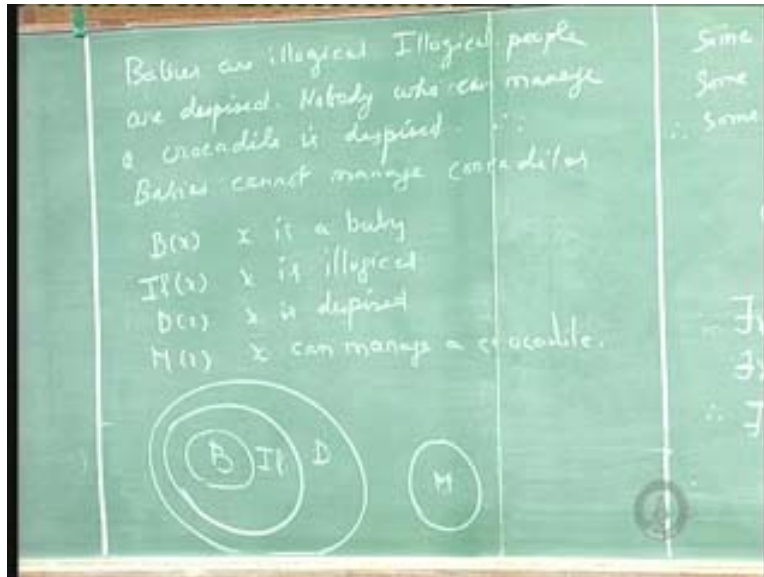 Babies are illogical Illogical people
are despised. Nobody who can manage
a crocadile is despised. ∴
Babies cannot manage crocadiles
B(x) x is a baby
Il(x) x is illogical
D(x) x is despised
M(x) x can manage a crocadile.
B Il D M
Some
Some
∴ Some
∃x
∃x
∴ ∃